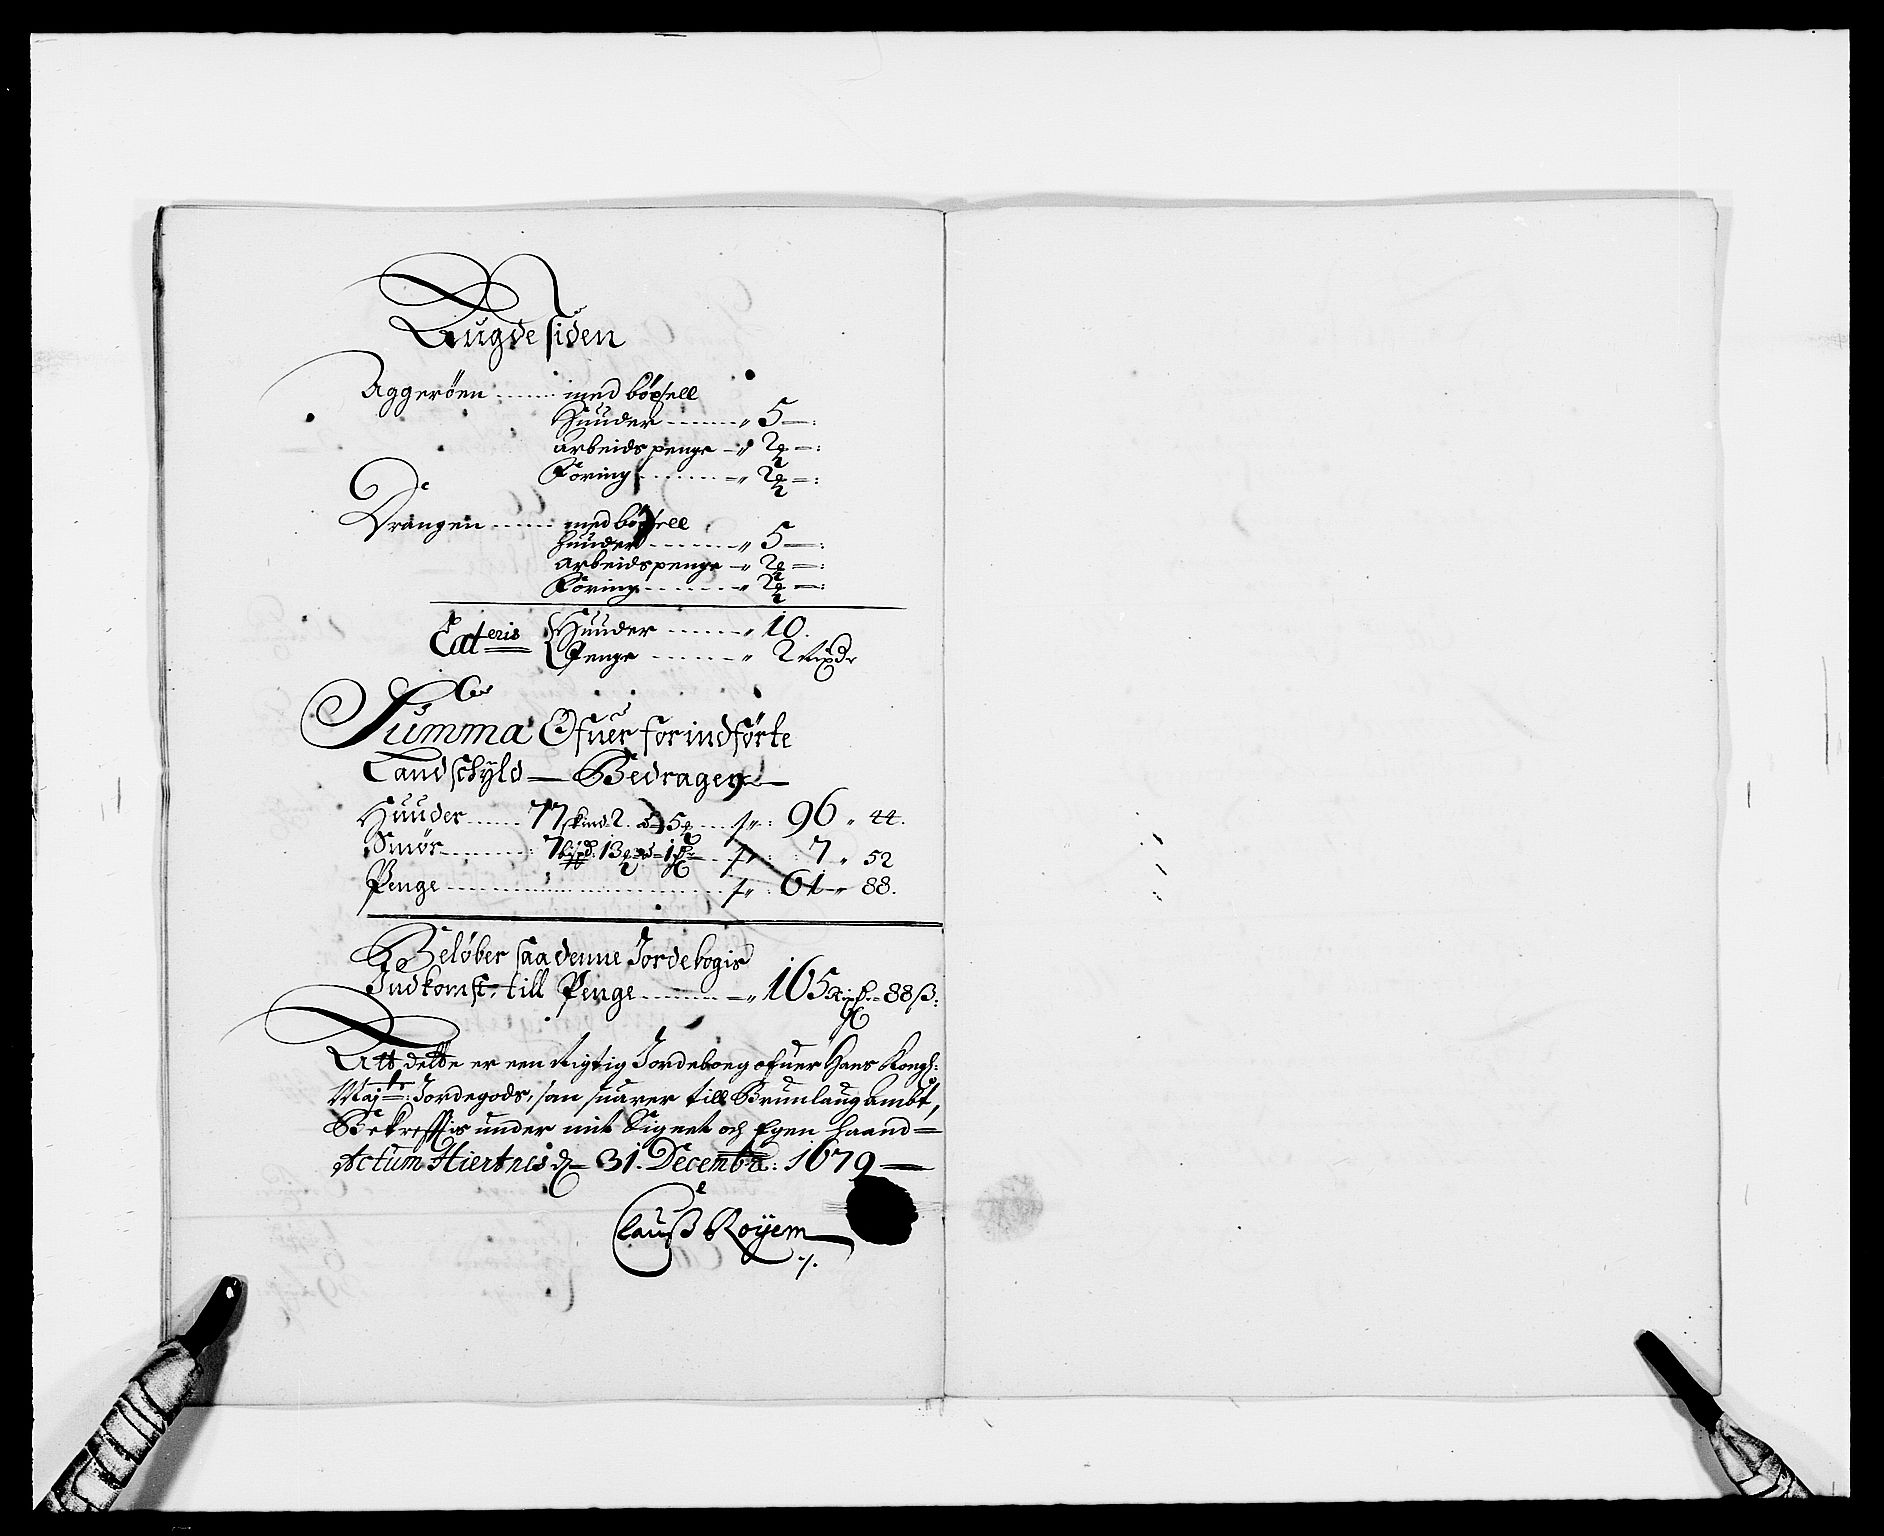 Bugdesiden
Aggeröen ...... med böxell
Huuder ...... „ 5 —:
arbeids penge —„ 2 ß —:
Föring ...... —„ 2 ß —:
Drängen ...... med böxell
huuder ...... —„ 5 —:
arbeidspenge —„ 2 ß —:
Föring ...... —„ 2 ß —:
Lateris Huuder ...... „ 10.
Penge ...... „ 2 Rixdr
Summa Ofuer forindförte
Landschyld — Bedragen —
Huuder ...... 77 skind 2. ... 96 „ 44.
Smör ...... 7 bispd: 13 ... 7 „ 52
Penge ...... 61 „ 88.
Belöber saa denne Jordebogis
Indkomst, till Penge ...... —„ 165 Rixdr — 88 ß:
Att dette er een Rigtig Jordeboeg ofuer Hans Kongl:
Mayts: Jordegods, som suarer till Brunlaug ambt,
Bekreffis under mit Signet och Egen haand —
Actum Hiertnes d— 31. Decembr: 1679 —
Clauß Röyem